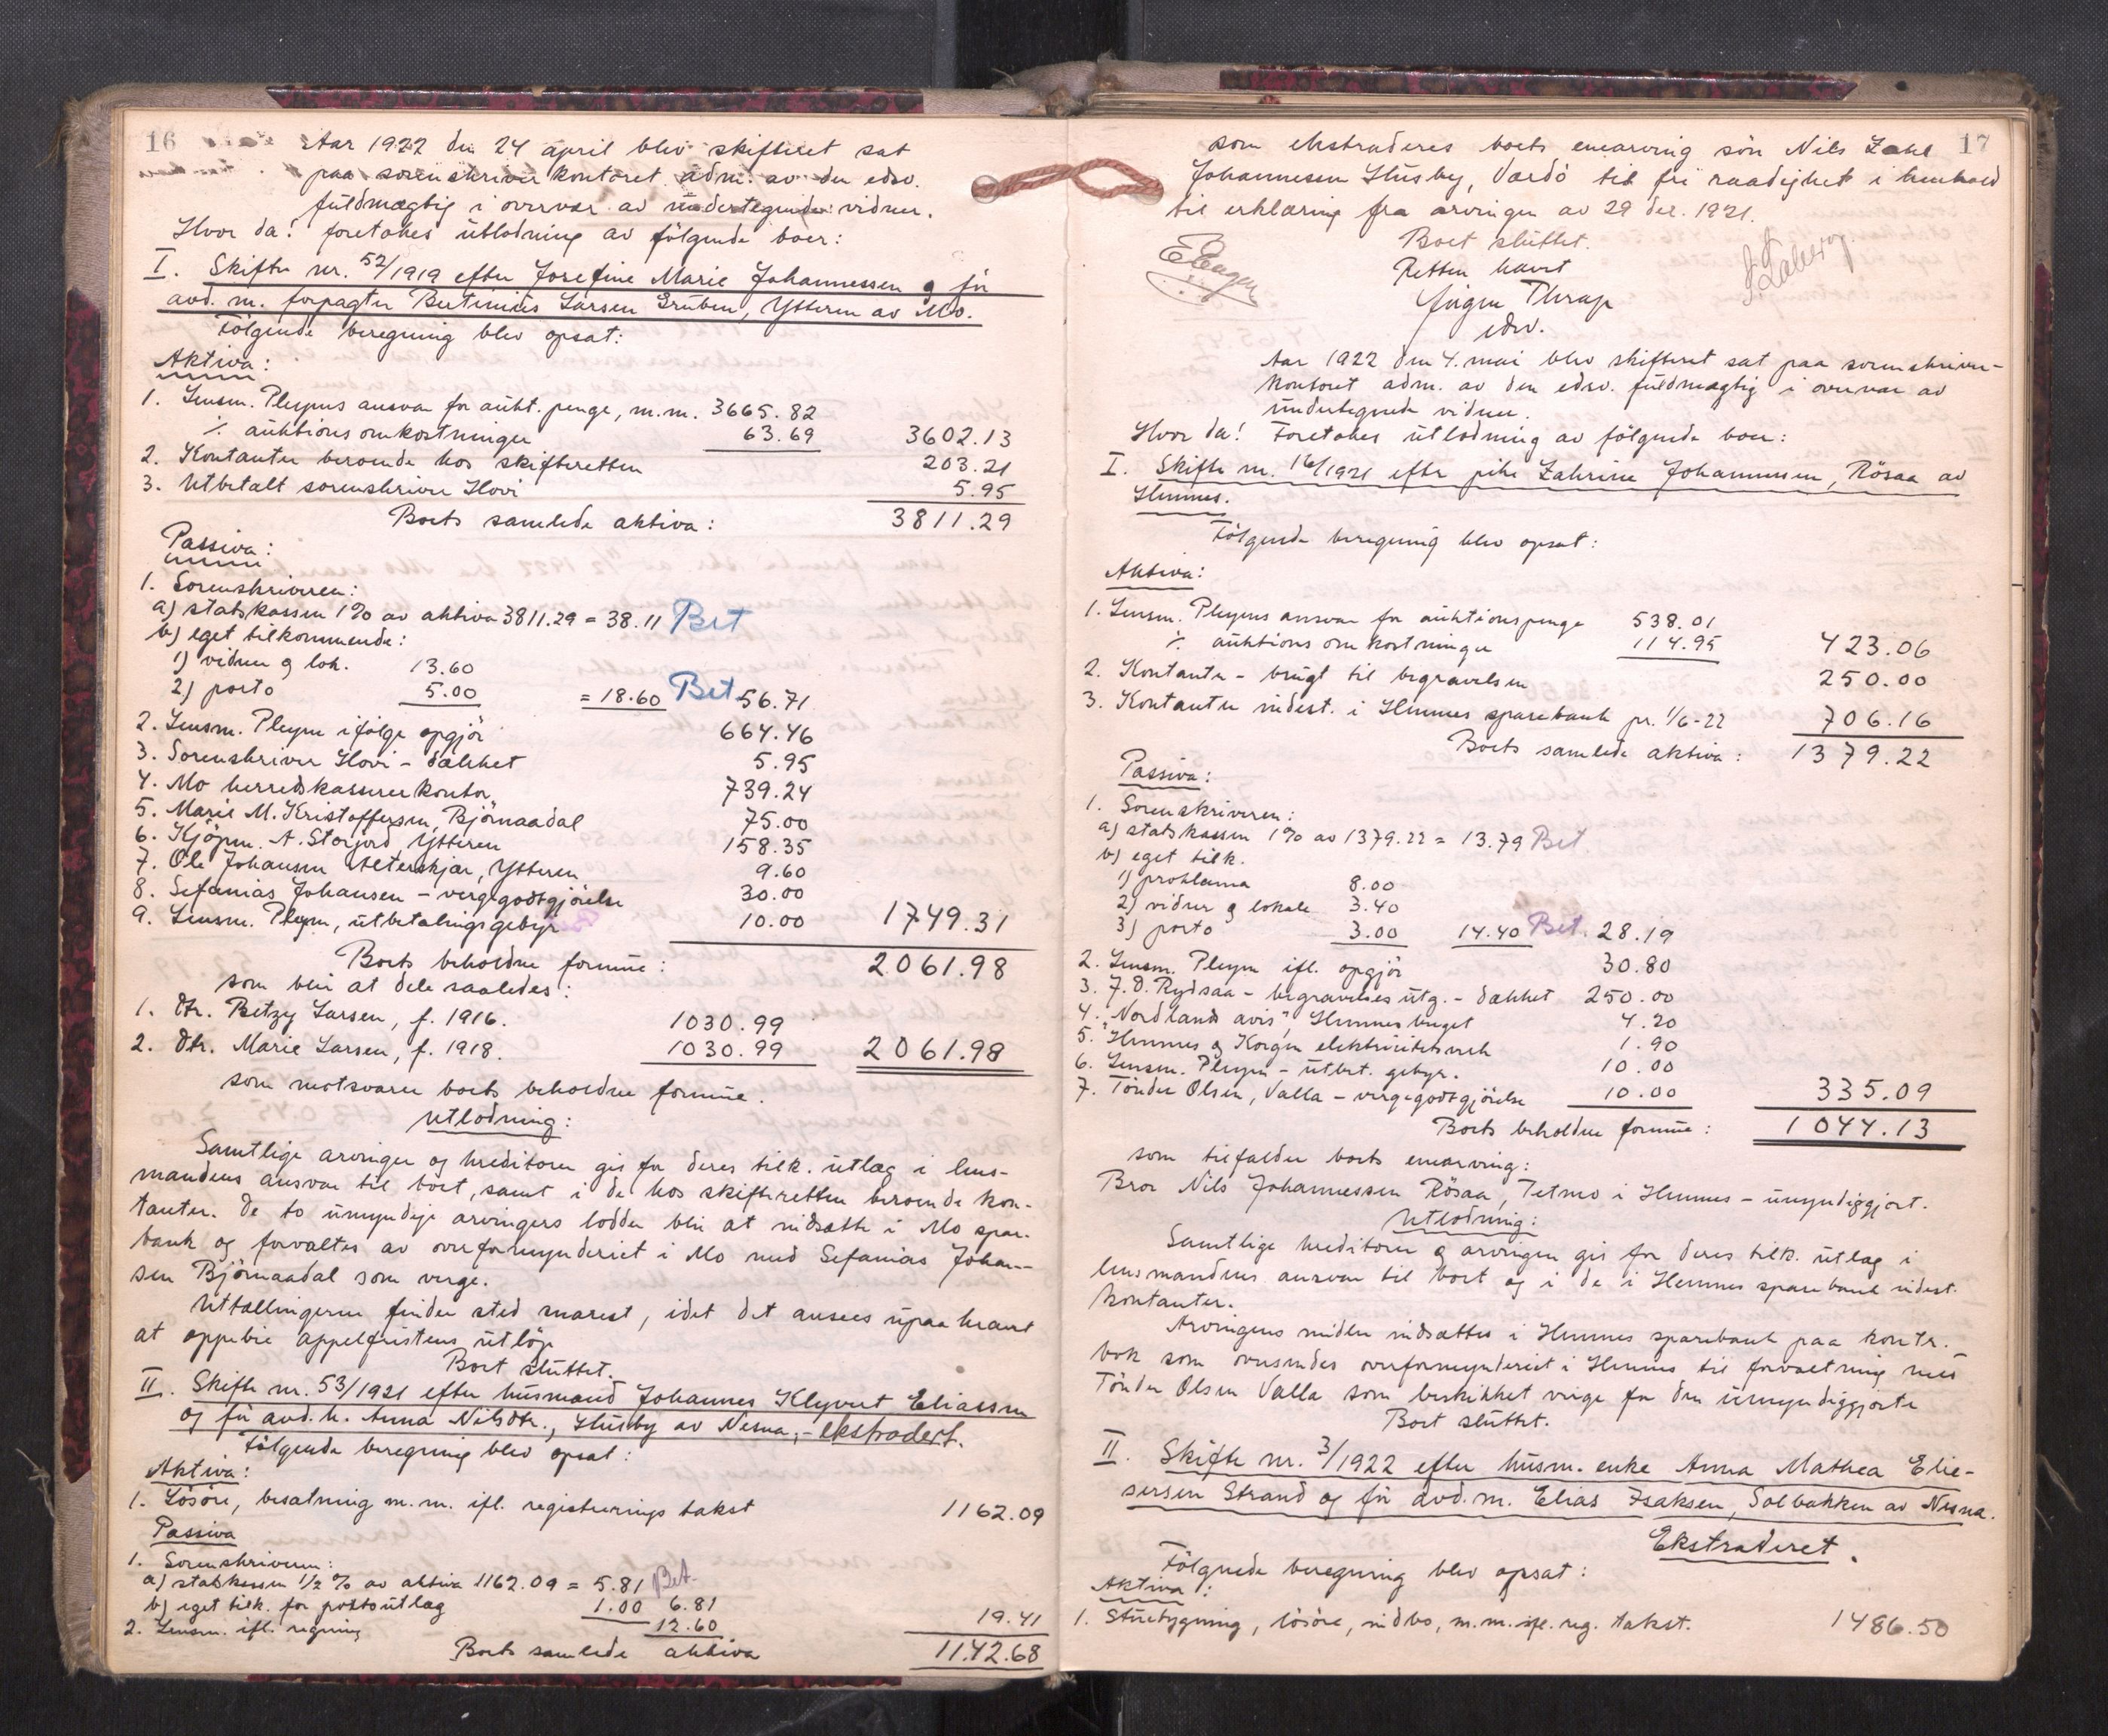 16
Aar 1922 den 24 april blev skifteret sat
paa sorenskriverkontoret adm. av den edsv.
fuldmægtig i overvær av undertegnede vidner.
Hvor da! foretokes utlodning av følgende boer:
I. Skifte nr. 52/1919 efter Josefine Marie Johannessen og før
avd. m. forpagter Bertinius Larsen Gruben, Ytteren av Mo.
Følgende beregning blev opsat:
Aktiva:
1. Lensm. Pleyms ansvar for aukt. penge, m.m. 3665.82
÷ auktionsomkostninger 63.69 3602.13
2. Kontanter beroende hos skifteretten 203.21
3. Utbetalt sorenskriver Hovi 5.95
Boets samlede aktiva: 3811.29
Passiva:
1. Sorenskriveren:
a) statskassen 1% av aktiva 3811.29 = 38.11 Bet
b) eget tilkommende:
1) vidner og lok. 13.60
2) porto 5.00 = 18.60 Bet 56.71
2. Lensm. Pleym ifølge opgjør 664.46
3. Sorenskriver Hovi - dækket 5.95
4. Mo herredskassererkontor 739.24
5. Marie M. Kristoffersen, Bjørnaadal 75.00
6. Kjøpm. A. Storjord, Ytteren 158.35
7. Ole Johansen Alterskjær, Ytteren 9.60
8. Sefanias Johansen - vergegodtgjørelse 30.00
9. Lensm. Pleym, utbetalingsgebyr 10.00 1749.31
Boets beholdne formue: 2061.98
som blir at dele saaledes:
1. dtr. Betzy Larsen, f. 1916. 1030.99
2. dtr. Marie Larsen, f. 1918. 1030.99 2061.98
som motsvarer boets beholdne formue.
Utlodning:
Samtlige arvinger og kreditorer gis for deres tilk. utlæg i lens-
mandens ansvar til boet, samt i de hos skifteretten beroende kon-
tanter. De to umyndige arvingers lodder blir at indsætte i Mo spare-
bank og forvaltes av overformynderiet i Mo med Sefanias Johan-
sen Bjørnaadal som verge.
Uttællingerne finder sted snarest, idet det ansees upaakrævet
at oppebie appelfristens utløp.
Boet sluttet.
II. Skifte nr. 53/1921 efter husmand Johannes Klyvert Eliassen
og før avd. h. Anna Nilsdtr., Husby av Nesna, - ekstradert.
Følgende beregning blev opsat:
Aktiva:
1. Løsøre, besætning m.m. ifl. registreringstakst 1162.09
Passiva
1. Sorenskriveren:
a) statskassen 1/2 % av aktiva 1162.09 = 5.81 Bet.
b) eget tilk. for portoutlæg 1.00 6.81
2. Lensm. ifl. regning 12.60 19.41
Boets samlede aktiva 1142.68
17
som ekstraderes boets enearving søn Nils Zahl
Johannessen Husby, Vardö til fri raadighet i henhold
til erklæring fra arvingen av 29 des. 1921.
Boet sluttet.
Retten hævet
Jørgen Thrap
edsv.
Aar 1922 den 4. mai blev skifteret sat paa sorenskriver-
kontoret adm. av den edsv. fuldmægtig i overvær av
undertegnede vidner.
Hvor da! Foretokes utlodning av følgende boer:
I. Skifte nr. 16/1921 efter pike Zahrine Johannessen, Røsaa av
Hemnes.
Følgende beregning blev opsat:
Aktiva:
1. Lensm. Pleyms ansvar for auktionspenge 538.01
÷ auktionsomkostninger 114.95 423.06
2. Kontanter - brugt til begravelsen 250.00
3. Kontanter indest. i Hemnes sparebank pr. 1/6-22 706.16
Boets samlede aktiva: 1379.22
Passiva:
1. Sorenskriveren:
a) statskassen 1% av 1379.22 = 13.79 Bet.
b) eget tilk.
1) proklama 8.00
2) vidner og lokale 3.40
3) porto 3.00 14.40 Bet. 28.19
2. Lensm. Pleym ifl. opgjør 30.80
3. J. O. Rydsaa - begravelsesutg. - dækket 250.00
4. "Nordlands avis", Hemnesberget 4.20
5. Hemnes og Korgen elektricitetsverk 1.90
6. Lensm. Pleym - utbet. gebyr. 10.00
7. Tønder Olsen, Valla - vergegodtgjørelse 10.00 335.09
Boets beholdne formue: 1044.13
som tilfalder boets enearving:
Bror Nils Johannessen Røsaa, Tetmo i Hemnes - umyndiggjort.
Utlodning:
Samtlige kreditorer og arvingen gis for deres tilk. utlæg i
lensmandens ansvar til boet og i de i Hemnes sparebank indest.
kontanter.
Arvingens midler indsættes i Hemnes sparebank paa kontr.
bok som oversendes overformynderiet i Hemnes til forvaltning med
Tønder Olsen Valla som beskikket verge for den umyndiggjorte
Boet sluttet.
II. Skifte nr. 3/1922 efter husm. enke Anna Mathea Elie-
sersen Strand og før avd. m. Elias Isaksen, Solbakken av Nesna.
Ekstraderet.
Følgende beregning blev opsat:
Aktiva:
1. Stuebygning, løsøre, indbo, m.m. ifl. reg. takst. 1486.50